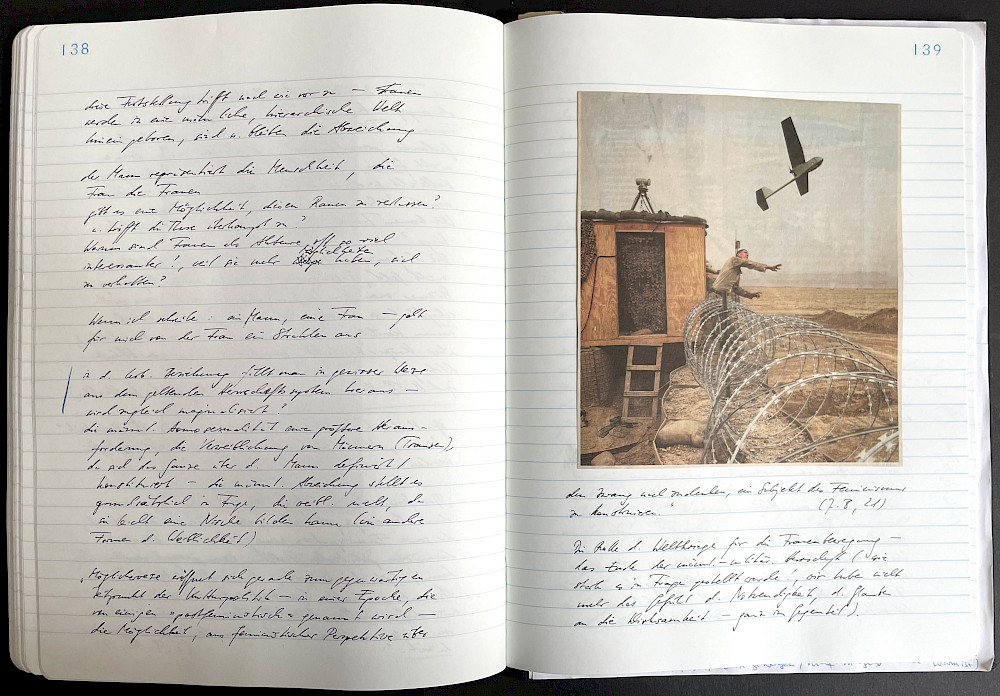 138
diese Feststellung trifft nach wie vor zu — Frauen
werden in eine männliche, hierarchische Welt
hineingeboren, sind u. bleiben die Abweichung
der Mann repräsentiert die Menschheit, die
Frau die Frauen
gibt es eine Möglichkeit, diesen Raum zu verlassen?
u. trifft die These überhaupt zu?
Warum sind Frauen als Akteure oft so viel
interessanter?, weil sie mehr haben, sich
zu verhalten?
Wenn ich schreibe: ein Mann, eine Frau — geht
für mich von der Frau ein Strahlen aus
in d. lesb. Beziehung fällt man in gewisser Weise
aus dem geltenden Herrschaftssystem heraus —
wird zugleich marginalisiert?
die männl. Homosexualität eine größere Heraus-
forderung, die Verweiblichung von Männern (Transen),
da sich das Ganze über d. Mann definiert/
konstituiert — die männl. Abweichung stellt es
grundsätzlich in Frage, die weibl. nicht, da
sie leicht eine Nische bilden kann (ein andere
Formen d. Weiblichkeit)
„Möglicherweise eröffnet sich gerade zum gegenwärtigen
Zeitpunkt der Kulturpolitik — in einer Epoche, die
von einigen »postfeministisch« genannt wird —
die Möglichkeit, aus feministischer Perspektive über
139
den Zwang nachzudenken, ein Subjekt des Feminismus
zu konstruieren."
(J.B., 21)
Die Rolle d. Weltkriege für die Frauenbewegung —
das Ende der männl.-militär. Herrschaft (wie
stark es in Frage gestellt wurde, wir haben nicht
mehr das Gefühl d. Notwendigkeit, d. Glauben
an die Wirksamkeit — ganz im Gegenteil).